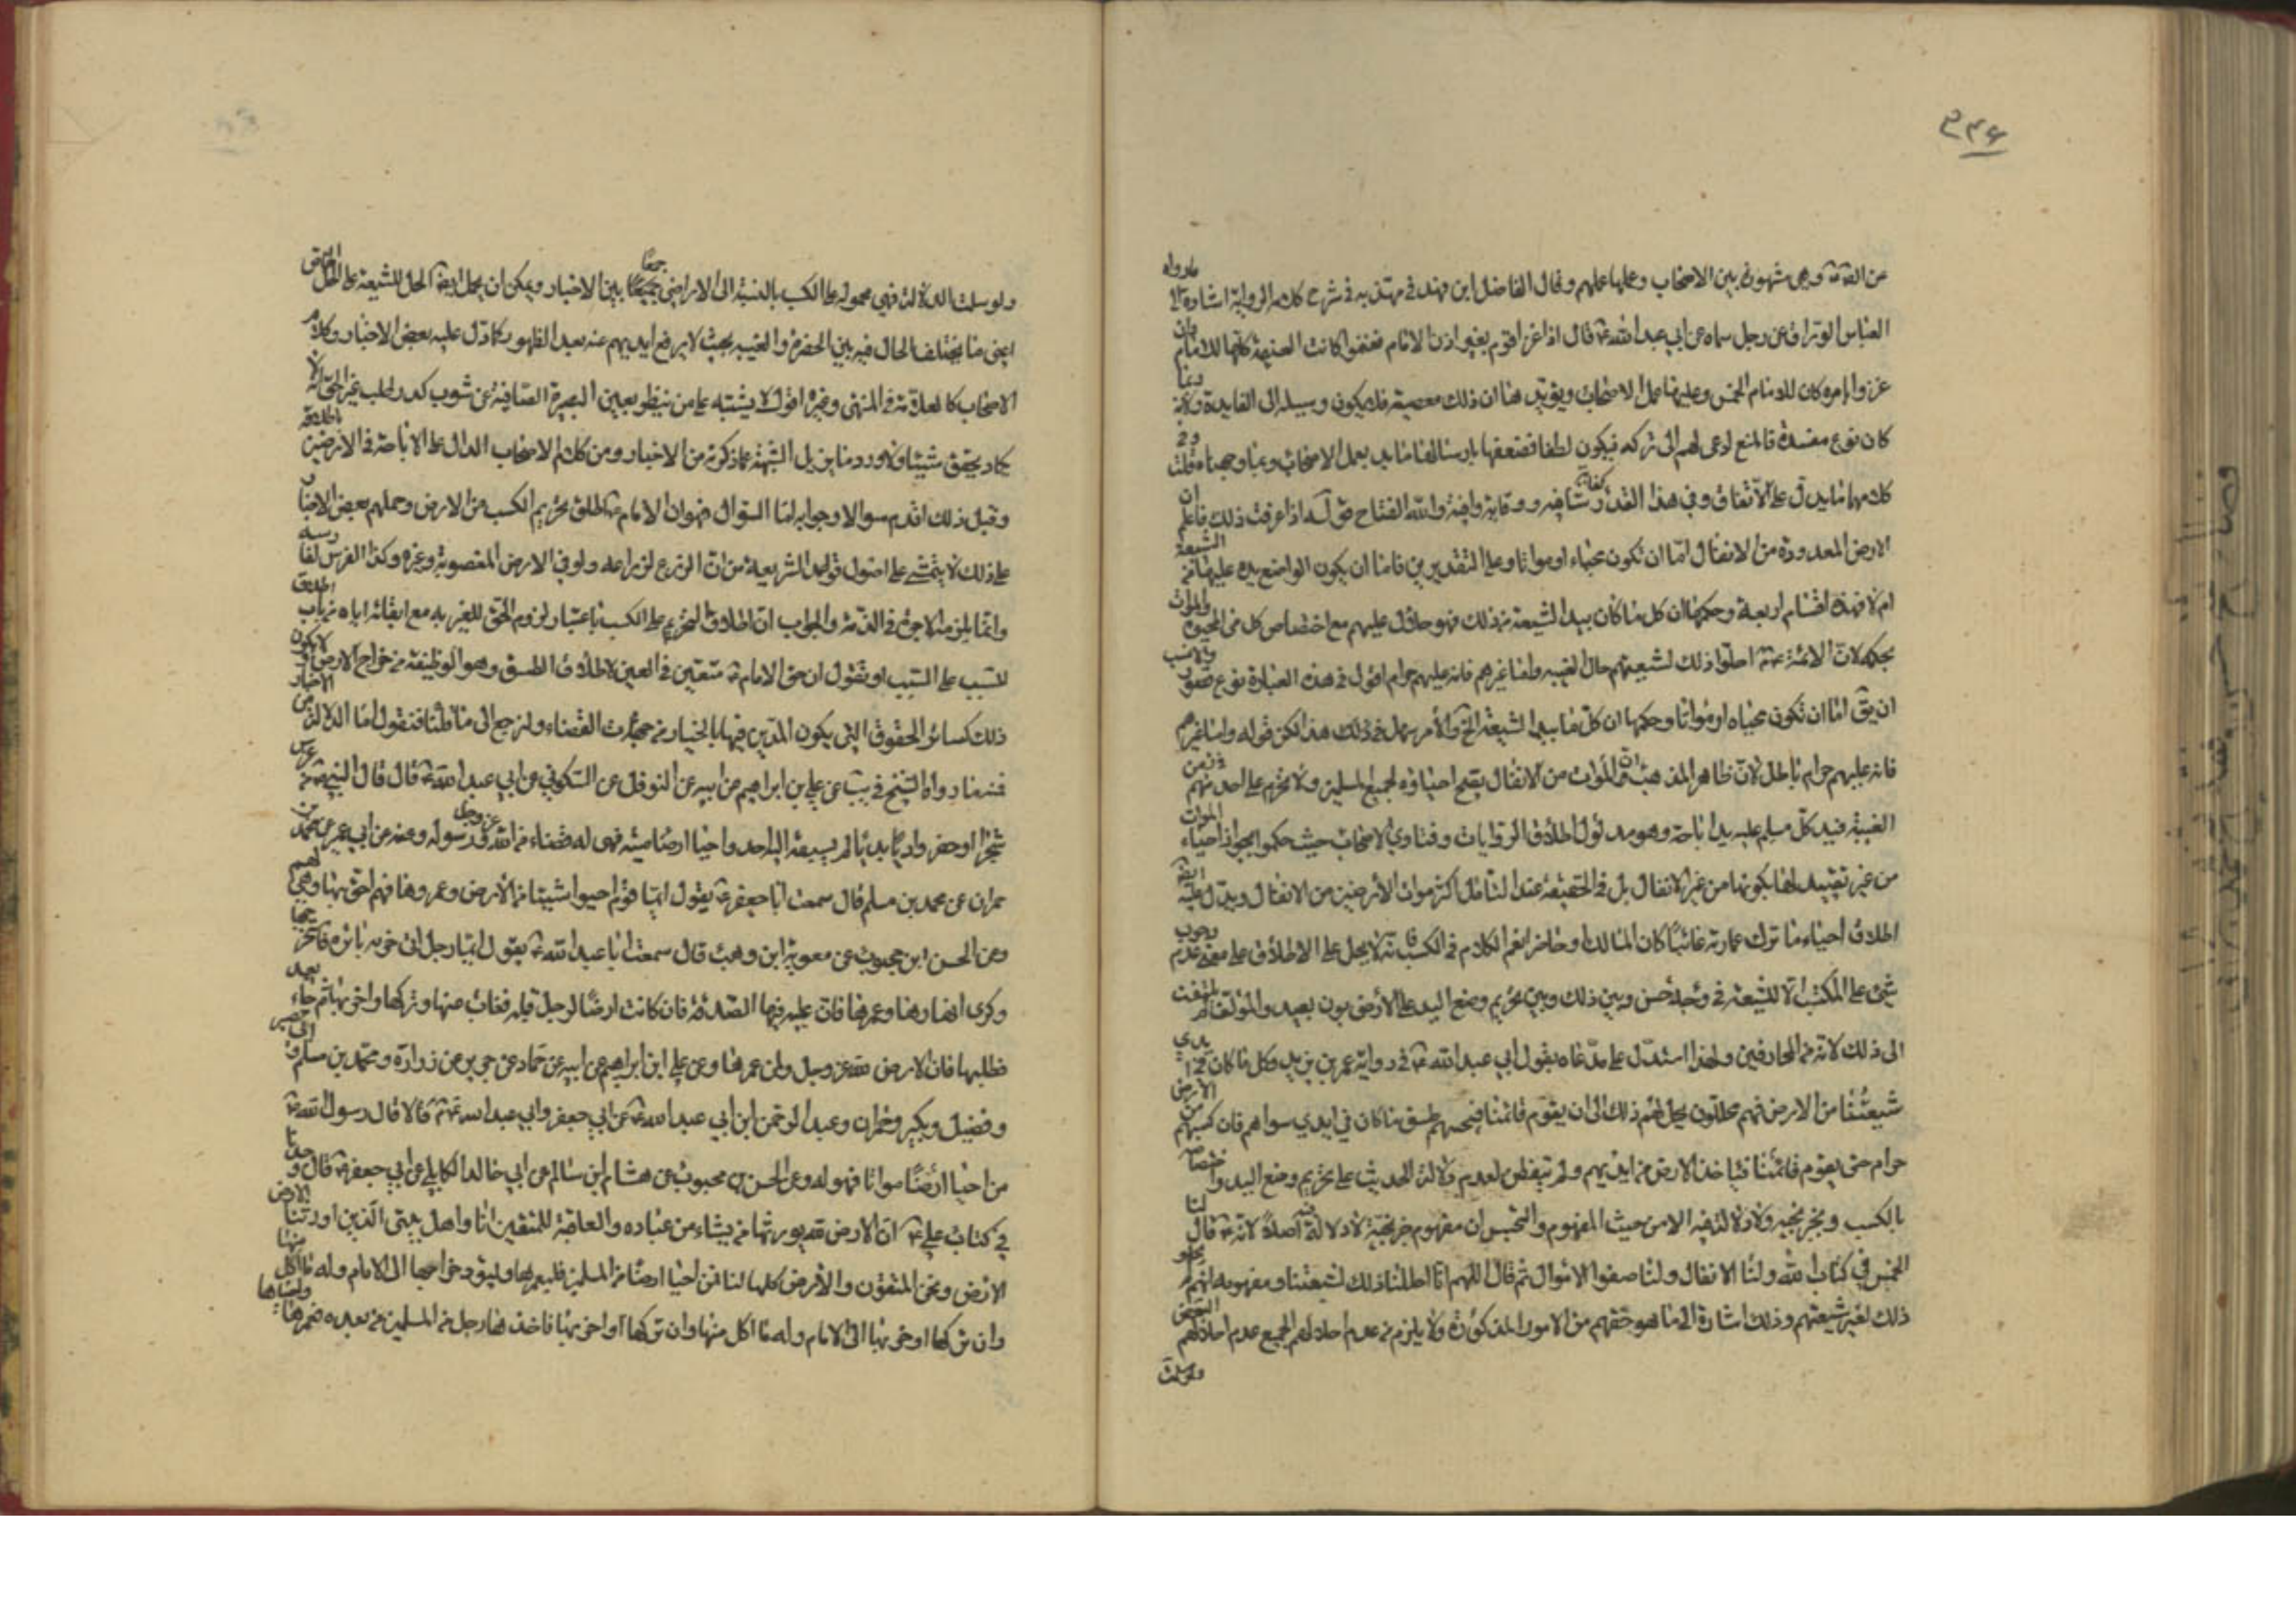 ٢٤٦
من القوة وهى مشهورة بين الاصحاب وعليها عملهم وقال الفاضل ابن فهد فى مهذبه فى شرح كلام الرواية اشارة الى مارواه
العباس الوراق عن رجل سماه عن ابي عبد الله ع قال اذا غزا قوم بغير اذن الامام فغنموا كانت الغنيمة كلها للامام وان
غزوا بامره كان للامام الخمس وعليها عمل الاصحاب ويؤيد هذا ان ذلك معصية فلا يكون وسيلة الى الفايدة ولانه ربما
كان نوع مفسدة فالمنع ادعى لهم الى تركه فيكون لطفا فضعفها بارسالها مايد بعمل الاصحاب وبما وجهناه قلت
كلامهما يدل على الاتفاق وفى هذا القدر كفاية شافيه ووقاية وافية والله الفتاح اذا عرفت ذلك فاعلم ان
الارض المعدودة من الانفال اما ان تكون محياة او مواتا وعلى التقديرين فاما ان يكون الواضع يده عليها من الشيعة
ام لا فهذه اقسام اربعة وحكمها ان كل ما كان بيد الشيعة من ذلك فهو حلال عليهم مع اختصاص كل من المحياة والموات
بحكمه لان الائمة ع احلوا ذلك لشيعتهم حال الغيبه واما غيرهم فانه عليهم حرام اقول فى هذه العبارة نوع قصور والانسب
ان يق اما ان تكون محياه او مواتا وحكمها ان كل ما بيد الشيعة الخ والامر سهل فى ذلك هذا لكن قوله واما غيرهم
فانه عليهم حرام باطل لان ظاهر المذهب ان الموات من الانفال يصح احياؤه لجميع المسلمين ولا يحرم على احد منهم زمن
الغيبة فيد كل مسلم عليه يد اباحة وهو مدلول اطلاق الروايات وفتاوي الاصحاب حيث حكموا بجواز احياء الموات
من غير تقييد لها بكونها من غير الانفال بل فى الحقيقة عند التامل اكثر موات الارضين من الانفال ويدل عليه ايضا
اطلاق احياء ما ترك عمارته غائبا كان المالك او حاضرا نعم الكلام فى الكسب فانه لا يحل على الاطلاق على معنى عدم وجوب
شئ على المكتسب الا للشيعة فى وجه حسن وبين ذلك وبين تحريم وضع اليد على الارض بون بعيد والمؤلف لم يلتفت
الى ذلك لانه من المجازفين ولهذا استدل على مدعاه بقول ابي عبد الله ع فى رواية عمر بن يزيد وكل ما كان فى ايدي
شيعتنا من الارض فهم محللون يحل لهم ذلك الى ان يقوم قائمنا فيجبيهم طسق ما كان في ايدي سواهم فان كسبهم من الارض
حرام حتى يقوم قائمنا فياخذ الارض من ايديهم ولم يتفطن لعدم دلالة الحديث على تحريم وضع اليد واختصاصه
بالكسب وبخبر نجيه ولا دلالة فيه الا من حيث المفهوم والتخمس ان مفهوم خبر نجية لا دلالة فيه اصلا لانه ع قال لنا
الخمس في كتاب الله ولنا الانفال ولنا صفوا الاموال ثم قال اللهم انا احللنا ذلك لشيعتنا ومفهومه انهم لم يحلوا
ذلك لغير شيعتهم وذلك اشارة الى ما هو حقهم من الامور المذكورة ولا يلزم من عدم احلالهم الجميع عدم احلالهم البعض
ولو سلمت
ولو سلمت الدلالة فهي محموله على الكسب بالنسبة الى الاراضى جمعا بين الاخبار ويمكن ان يحمل الحل للشيعة على الحل الخاص
اعنى ما يختلف الحال فيه بين الحضرة والغيبه بحيث لا يرفع ايديهم عنه بعد الظهور كما دل عليه بعض الاخبار وكلام
الاصحاب كالعلامة فى المنتهى وغيره اقول لا يشتبه على من ينظر بعين البصيرة الصافية عن شوب كدر لطلب غير الحق انه لا
يكاد يتحقق شيئا ولا ورد ما يزيل الشبهة عما ذكرته من الاخبار ومن كلام الاصحاب الدال على الاباحة فى الارضين اطلاقه
وقبل ذلك اقدم سوالا وجوابه اما السؤال فهو ان الامام ع اطلق تحريم الكسب من الارض وحملهم بعض الاخبار
على ذلك لا يتمشى على اصول قواعد الشريعة من ان الزرع لزراعه ولو فى الارض المغصوبة وغيره وكذا الغرس لغارسه
وانما يلزمه الاجرة فى الذمة والجواب ان اطلاق التحريم على الكسب باعتبار لزوم الحق للغير به مع ابقائه اياه من باب اطلاق
السبب على المسبب او نقول ان حق الامام ع متعين فى العين لاطلاق الطسق وهو الوظيفة من خراج الارض لا يكون
ذلك كسائر الحقوق التي يكون المدين فيها بالخيار من جهات القضاء ولنرجع الى ما قلنا فنقول اما الدلالة من الاخبار
فمنها ما رواه الشيخ فى يب عن علي بن ابراهيم عن ابيه عن النوفلي عن السكوني عن ابي عبد الله ع قال قال النبي ص من غرس
شجرا او حفر واديا بديا لم يسبقه اليه احد واحيا ارضا ميتة فهى له قضاء من الله عز وجل ورسوله وعنه عن ابن ابي عمير عن محمد بن
حمران عن محمد بن مسلم قال سمعت ابا جعفر ع يقول ايما قوم احيوا شيئا من الارض وعمروها فهم احق بها وهى لهم
وعن الحسن ابن محبوب عن معوية ابن وهب قال سمعت ابا عبد الله ع يقول ايما رجل اتى خربه بائره فاستخرجها
وكرى انهارها وعمرها فان عليه فيها الصدقة فان كانت ارضا لرجل قبله فغاب عنها وتركها واخربها ثم جاء بعد
يطلبها فان الارض لله عز وجل ولمن عمرها وعن علي ابن ابراهيم عن ابيه عن حماد عن حريز عن زرارة ومحمد بن مسلم وابي بصير
وفضيل وبكير وحمران وعبد الرحمن ابن ابي عبد الله عن ابي جعفر وابي عبد الله ع قالا قال رسول الله ص
من احيا ارضا مواتا فهو له وعن الحسن بن محبوب عن هشام ابن سالم عن ابي خالد الكابلي عن ابي جعفر ع قال وجدنا
في كتاب علي ع ان الارض لله يورثها من يشاء من عباده والعاقبة للمتقين انا واهل بيتي الذين اورثنا الارض
الارض ونحن المتقون والارض كلها لنا فمن احيا ارضا من المسلمين فليعمرها وليؤد خراجها الى الامام وله ما اكل منها
وان تركها او خربها الى الامام وله ما اكل منها وان تركها او اخربها فاخذها رجل من المسلمين من بعده فعمرها واحياها